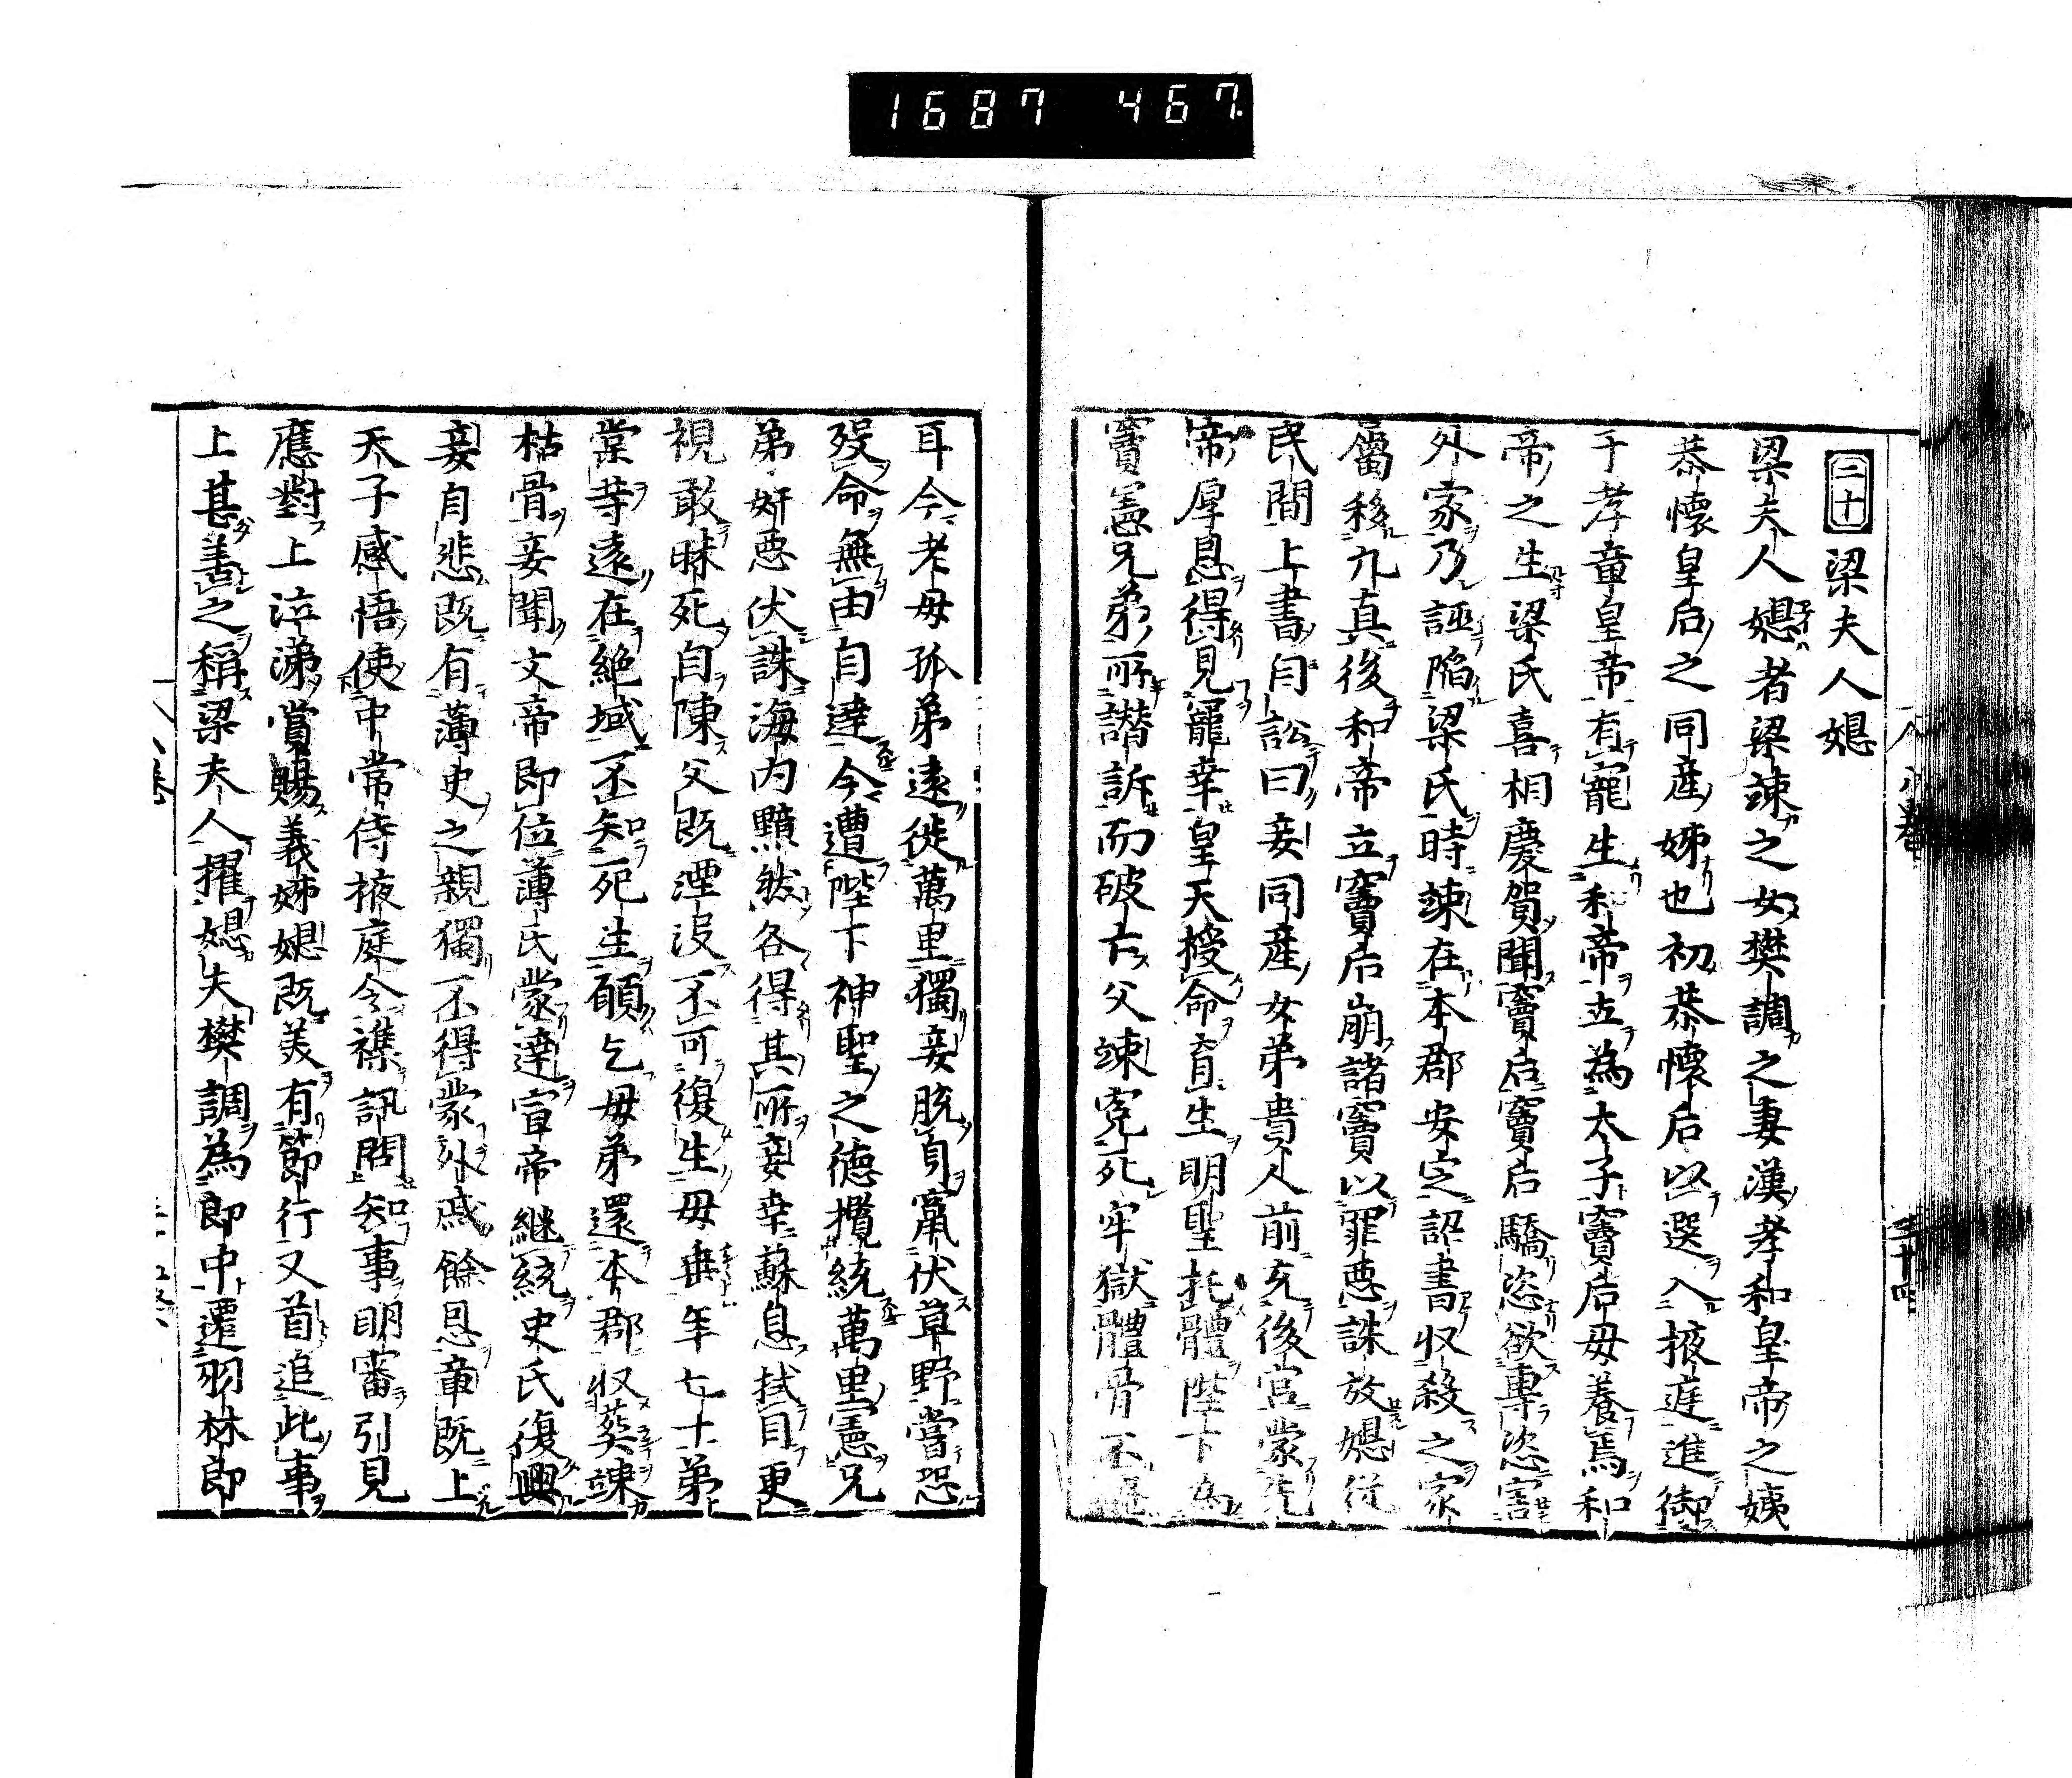 1687 467
二十 梁夫人嫕
梁夫人嫕者梁竦之女樊調之妻漢孝和皇帝之姨
恭懷皇后之同産姊也初恭懷后以選入掖庭進御
于孝章皇帝有寵生和帝立為太子竇后母養焉和
帝之生梁氏喜相慶賀聞竇后竇后驕恣欲專恣害
外家乃誣陷梁氏時竦在本郡安定詔書収殺之家
屬移九真後和帝立竇后崩諸竇以罪惡誅放嫕從
民間上書自訟曰妾同産女弟貴人前充後宮蒙先
帝厚恩得見寵幸皇天授命育生明聖托體陛下為
竇憲兄弟所譖訴而破亡父竦寃死牢獄體骨不
耳今老母孤弟遠徙萬里獨妾脱身竄伏草野嘗恐
歿命無由自達今遭陛下神聖之德攬統萬里憲兄
弟奸惡伏誅海内黯然各得其所妾幸蘇息拭目更
視敢昧死自陳父既湮没不可復生母垂年七十弟
棠等遠在絶域不知死生願乞母弟還本郡収葬竦
枯骨妾聞文帝即位薄氏蒙達宣帝継統史氏復興
妾自悲既有薄史之親獨不得蒙外戚餘恩章既上
天子感悟使中常侍掖庭令襍訊問知事明審引見
應對上泣涕賞賜義姊嫕既美有節行又首追此事
上甚善之稱梁夫人擢嫕夫樊調為郎中遷羽林郎